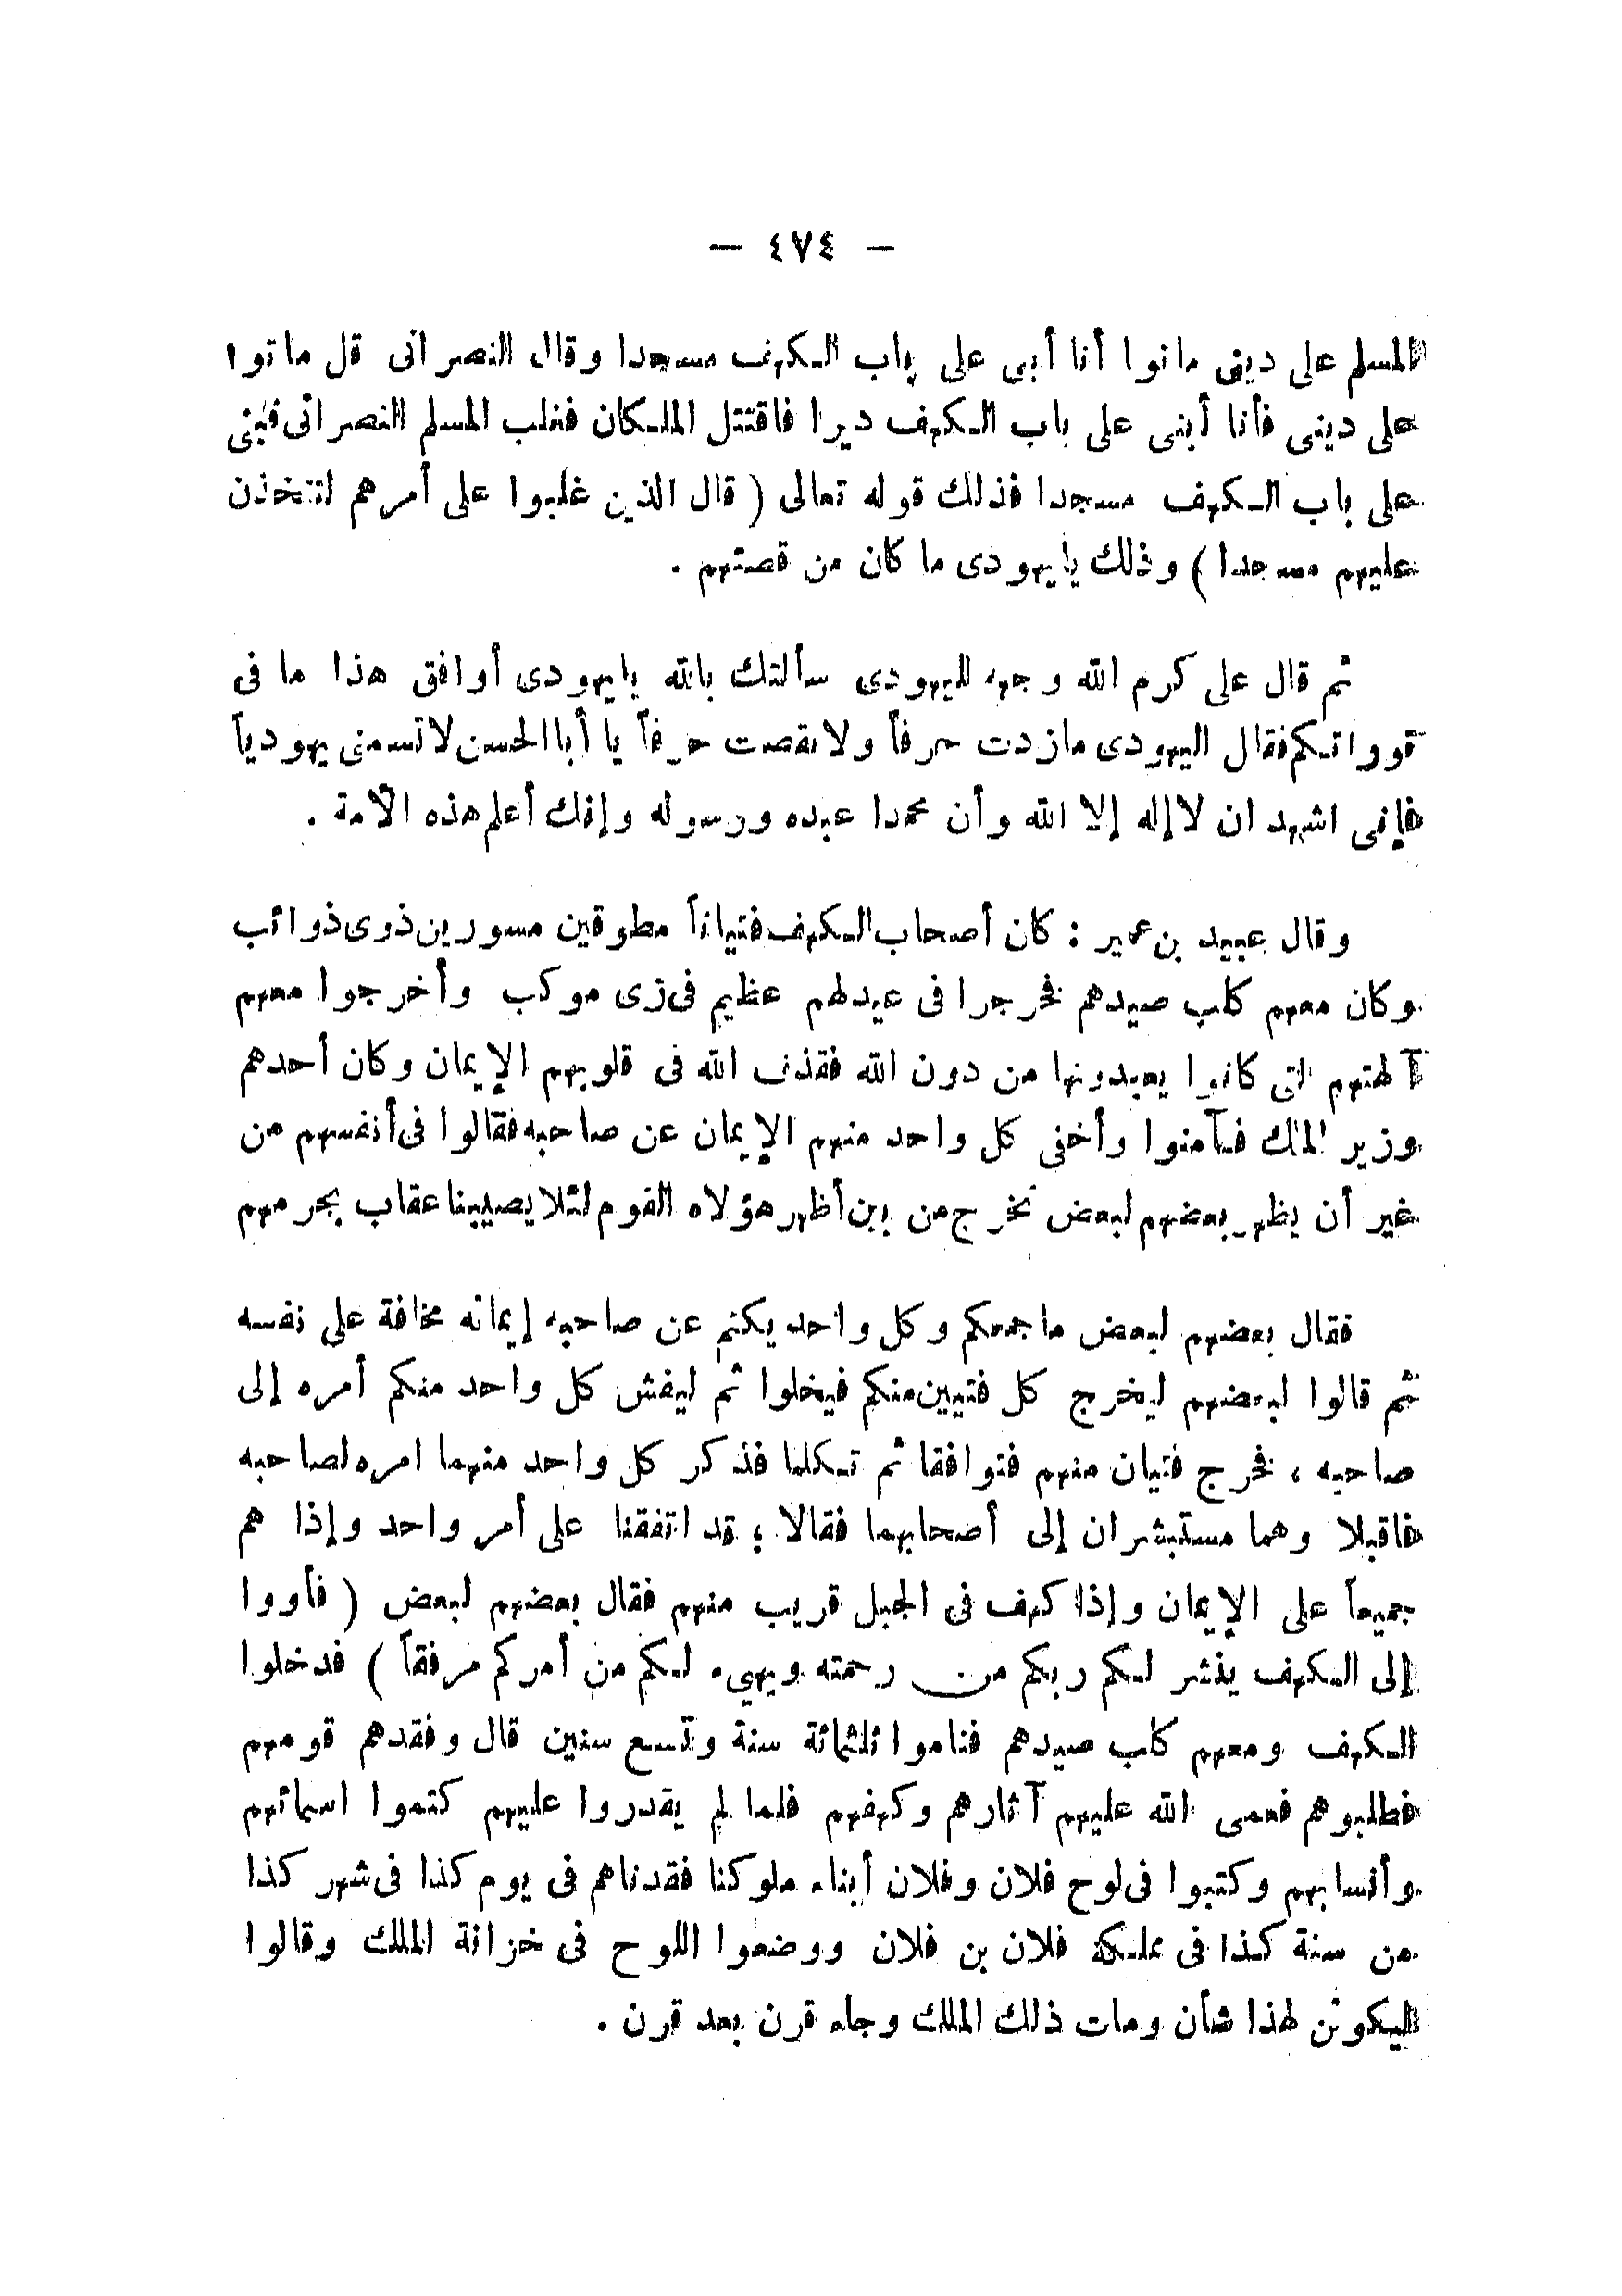 — ٤٧٤ —
المسلم على دينى ماتوا أنا أبنى على باب الكهف مسجدا وقال النصرانى قل ماتوا
على دينى فأنا أبنى على باب الكهف ديرا فاقتتل الملكان فغلب المسلم النصرانى فبنى
على باب الكهف مسجدا فذلك قوله تعالى ( قال الذين غلبوا على أمرهم لنتخذن
عليهم مسجدا ) وذلك يايهودى ما كان من قصتهم .
ثم قال على كرم الله وجهه لليهودى سألتك بالله يايهودى أوافق هذا ما فى
توراتكم فقال اليهودى مازدت حرفاً ولا نقصت حرفاً يا أبا الحسن لاتسمنى يهودياً
فإنى اشهد ان لاإله إلا الله وأن محمدا عبده ورسوله وإنك أعلم هذه الأمة .
وقال عبيد بن عمير : كان أصحاب الكهف فتياناً مطوقين مسورين ذوى ذوائب
وكان معهم كلب صيدهم فخرجرا فى عيدلهم عظيم فى زى موكب وأخرجوا معهم
آلهتهم التى كانوا يعبدونها من دون الله فقذف الله فى قلوبهم الإيمان وكان أحدهم
وزير الملك فآمنوا وأخفى كل واحد منهم الإيمان عن صاحبه فقالوا فى أنفسهم من
غير أن يظهر بعضهم لبعض نخرج من بين أظهر هؤلاه القوم لئلا يصيبنا عقاب بجرمهم
فقال بعضهم لبعض ماجمعكم وكل واحد يكتم عن صاحبه إيمانه مخافة على نفسه
ثم قالوا لبعضهم ليخرج كل فتيين منكم فيخلوا ثم ليفش كل واحد منكم أمره إلى
صاحبه ، فخرج فتيان منهم فتوافقا ثم تكلما فذكر كل واحد منهما امره لصاحبه
فاقبلا وهما مستبشران إلى أصحابهما فقالا ؛ قد اتفقنا على أمر واحد وإذا هم
جميعاً على الإيمان وإذا كهف فى الجبل قريب منهم فقال بعضهم لبعض ( فأووا
إلى الكهف ينشر لكم ربكم من رحمته ويهيء لكم من أمركم مرفقاً ) فدخلوا
الكهف ومعهم كلب صيدهم فناموا ثلثمائة سنة وتسع سنين قال وفقدهم قومهم
فطلبوهم فعمى الله عليهم آثارهم وكهفهم فلما لم يقدروا عليهم كتموا اسمائهم
وأنسابهم وكتبوا فى لوح فلان وفلان أبناء ملوكنا فقدناهم فى يوم كذا فى شهر كذا
من سنة كذا فى مملكة فلان بن فلان ووضعوا اللوح فى خزانة الملك وقالوا
ليكونن لهذا شأن ومات ذلك الملك وجاء قرن بعد قرن .